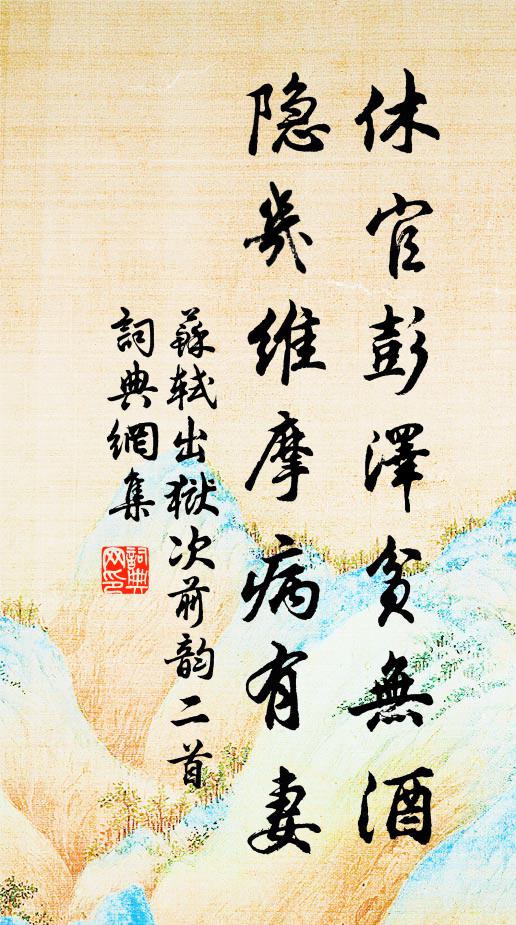 休官彭澤貧無酒
隐幾維摩病有妻
蘇軾出獄次前韵二首
詞典網集
詞典網印